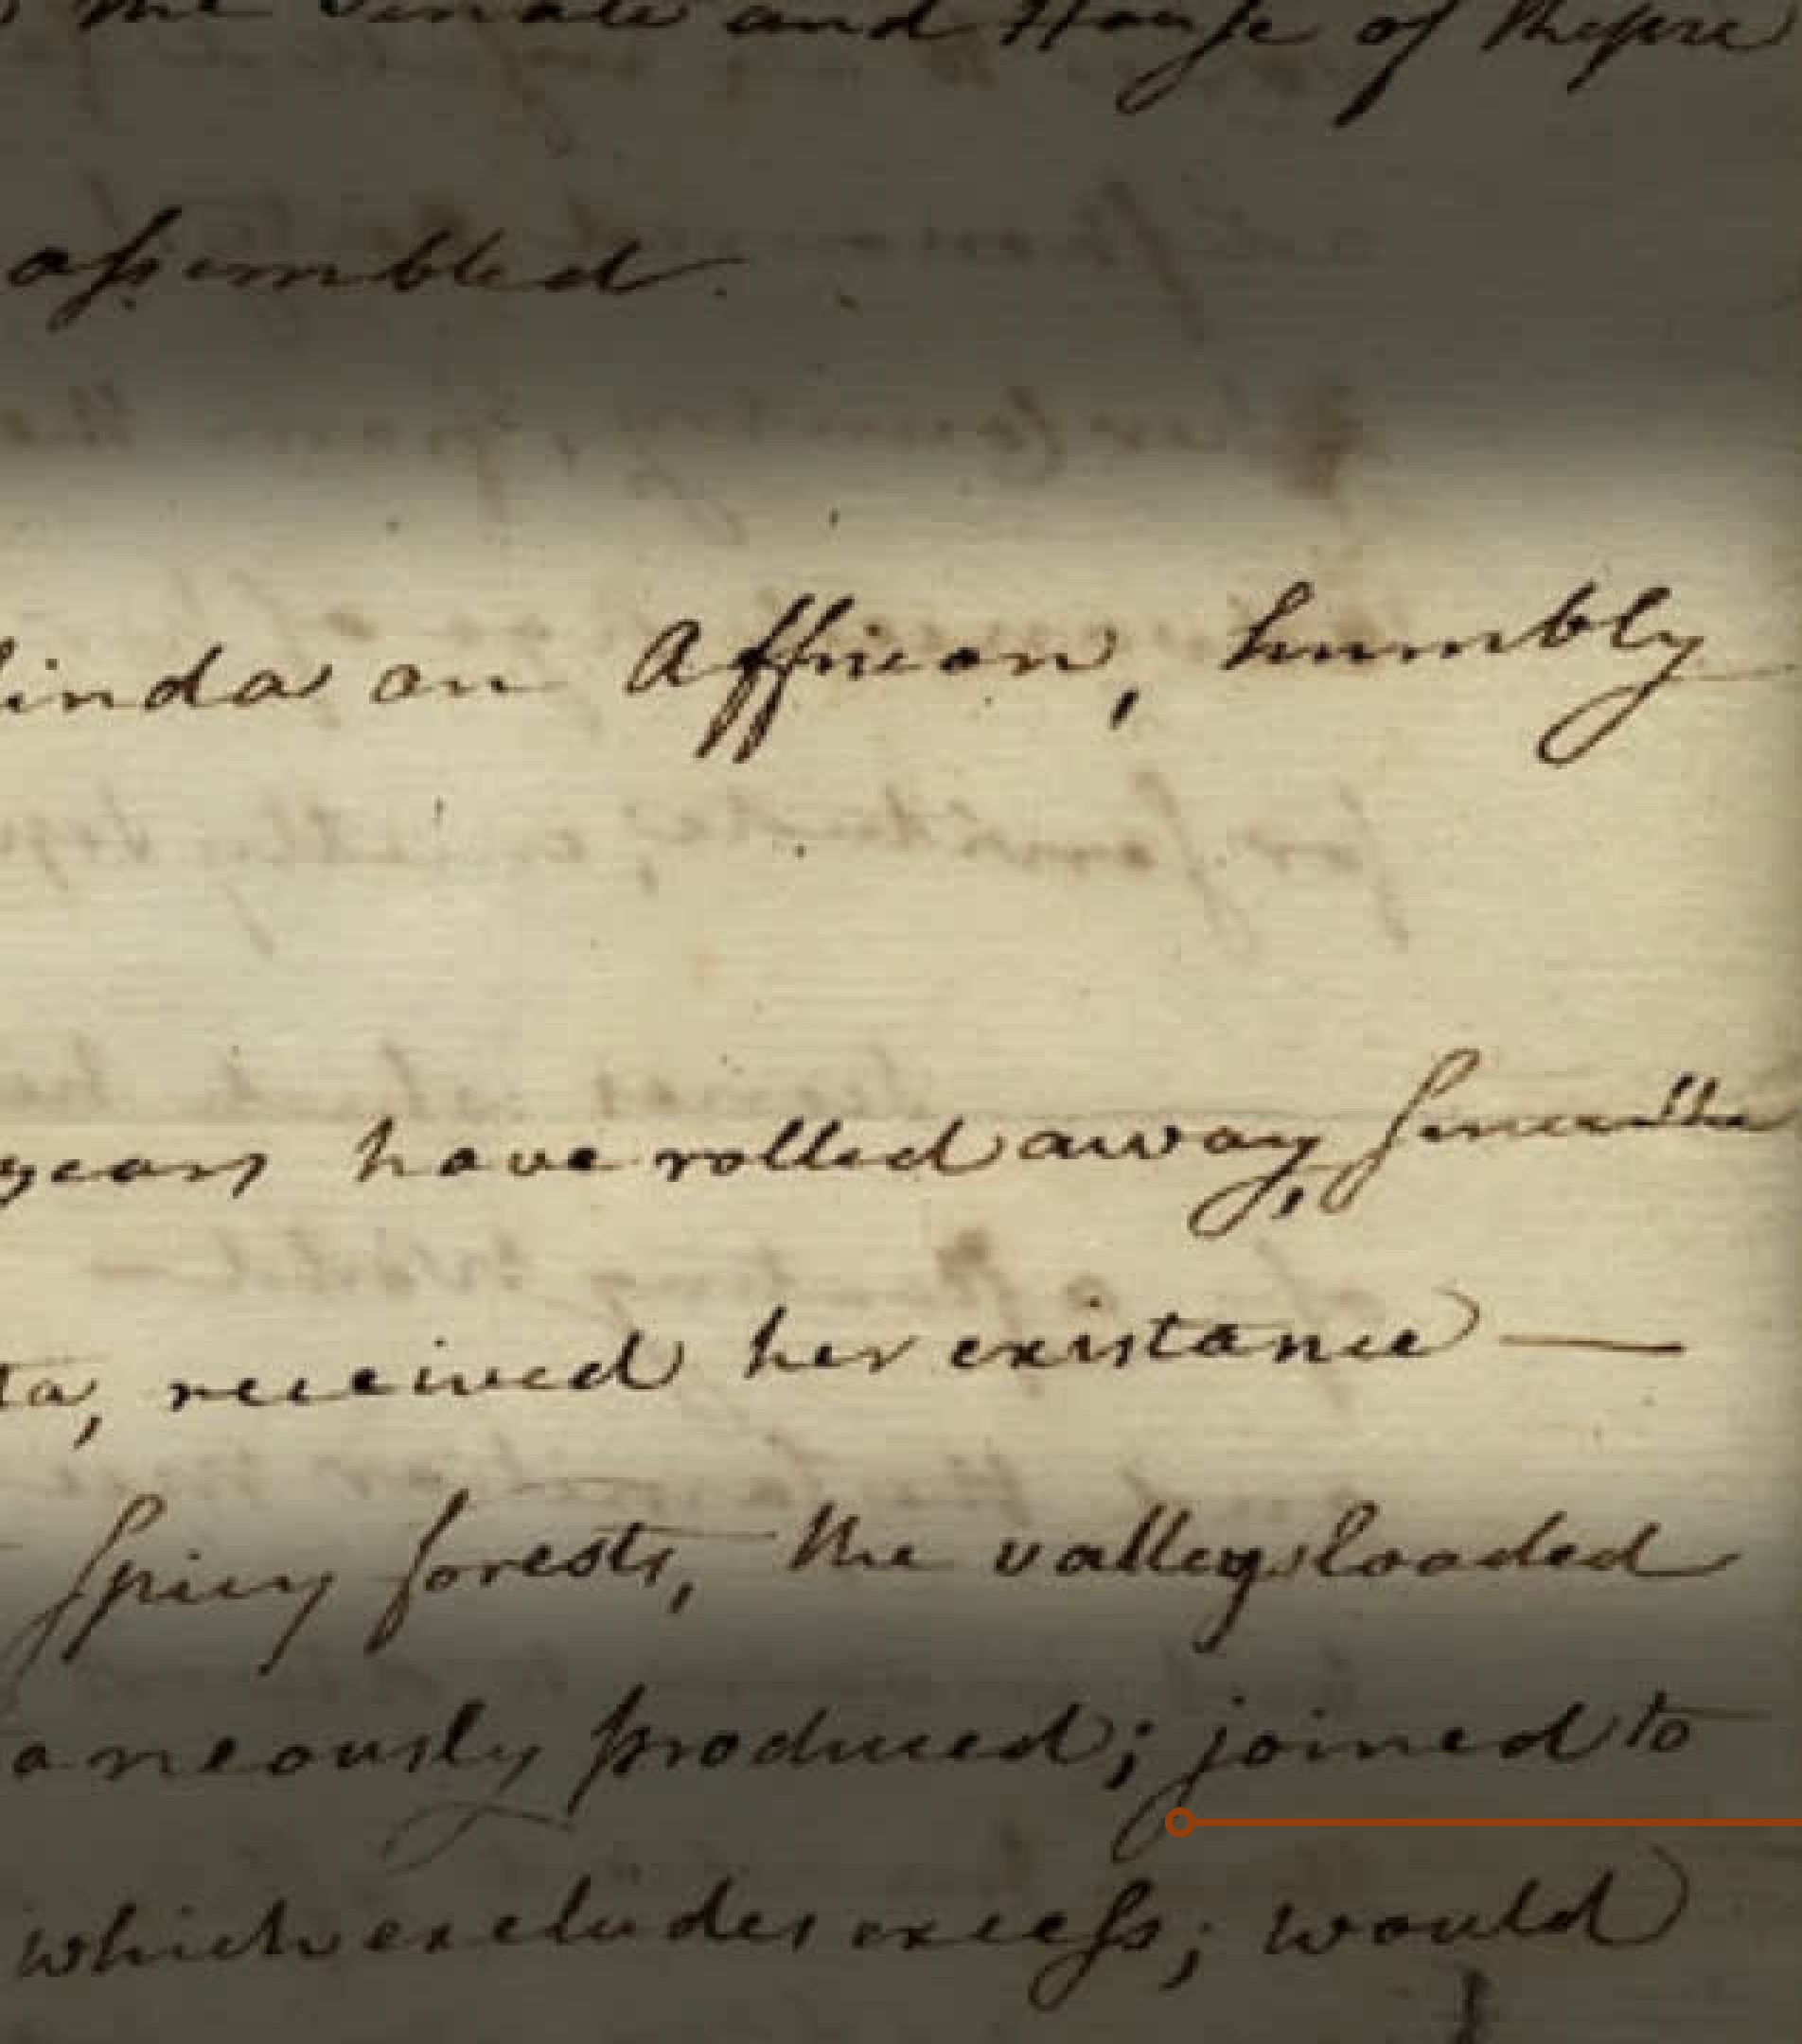 the Senate and House of Repre
assembled.
linda an Affrican, humbly
years have rolled away, Since the
ta, received her existance —
Spicy forests, the valleys loaded
aneously produced; joined to
which excludes excess; would